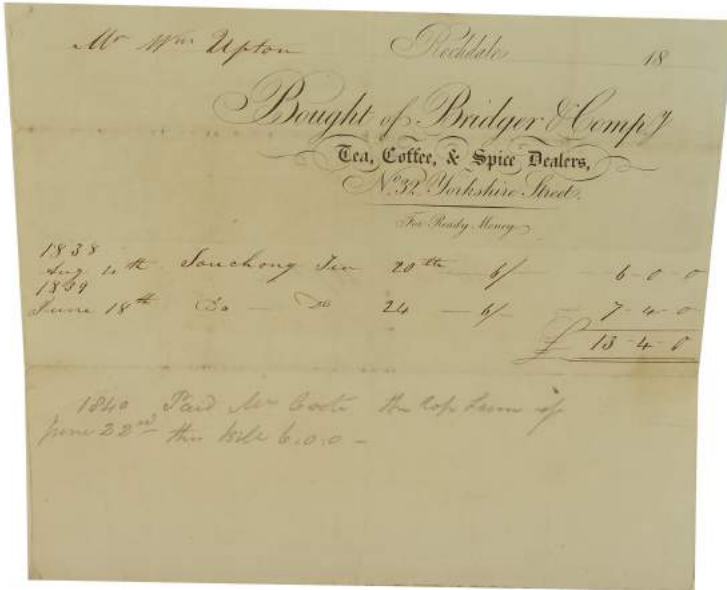 Mr Wm Upton Rochdale 18
Bought of Bridger & Compy
Tea, Coffee, & Spice Dealers,
No. 32 Yorkshire Street.
For Ready Money
1838
Aug 4th Souchong Tea 20 lb 6/ 6-0-0
1839
June 18th Do — Do 24 — 6/ — 7-4-0
£ 13-4-0
1840 Paid Mr the top Sum of
June 22nd this bill 6.0.0 -